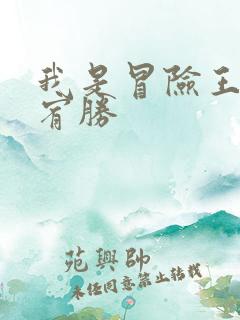 我是冒險王
宵勝
苑興帥
未经同意禁止转载